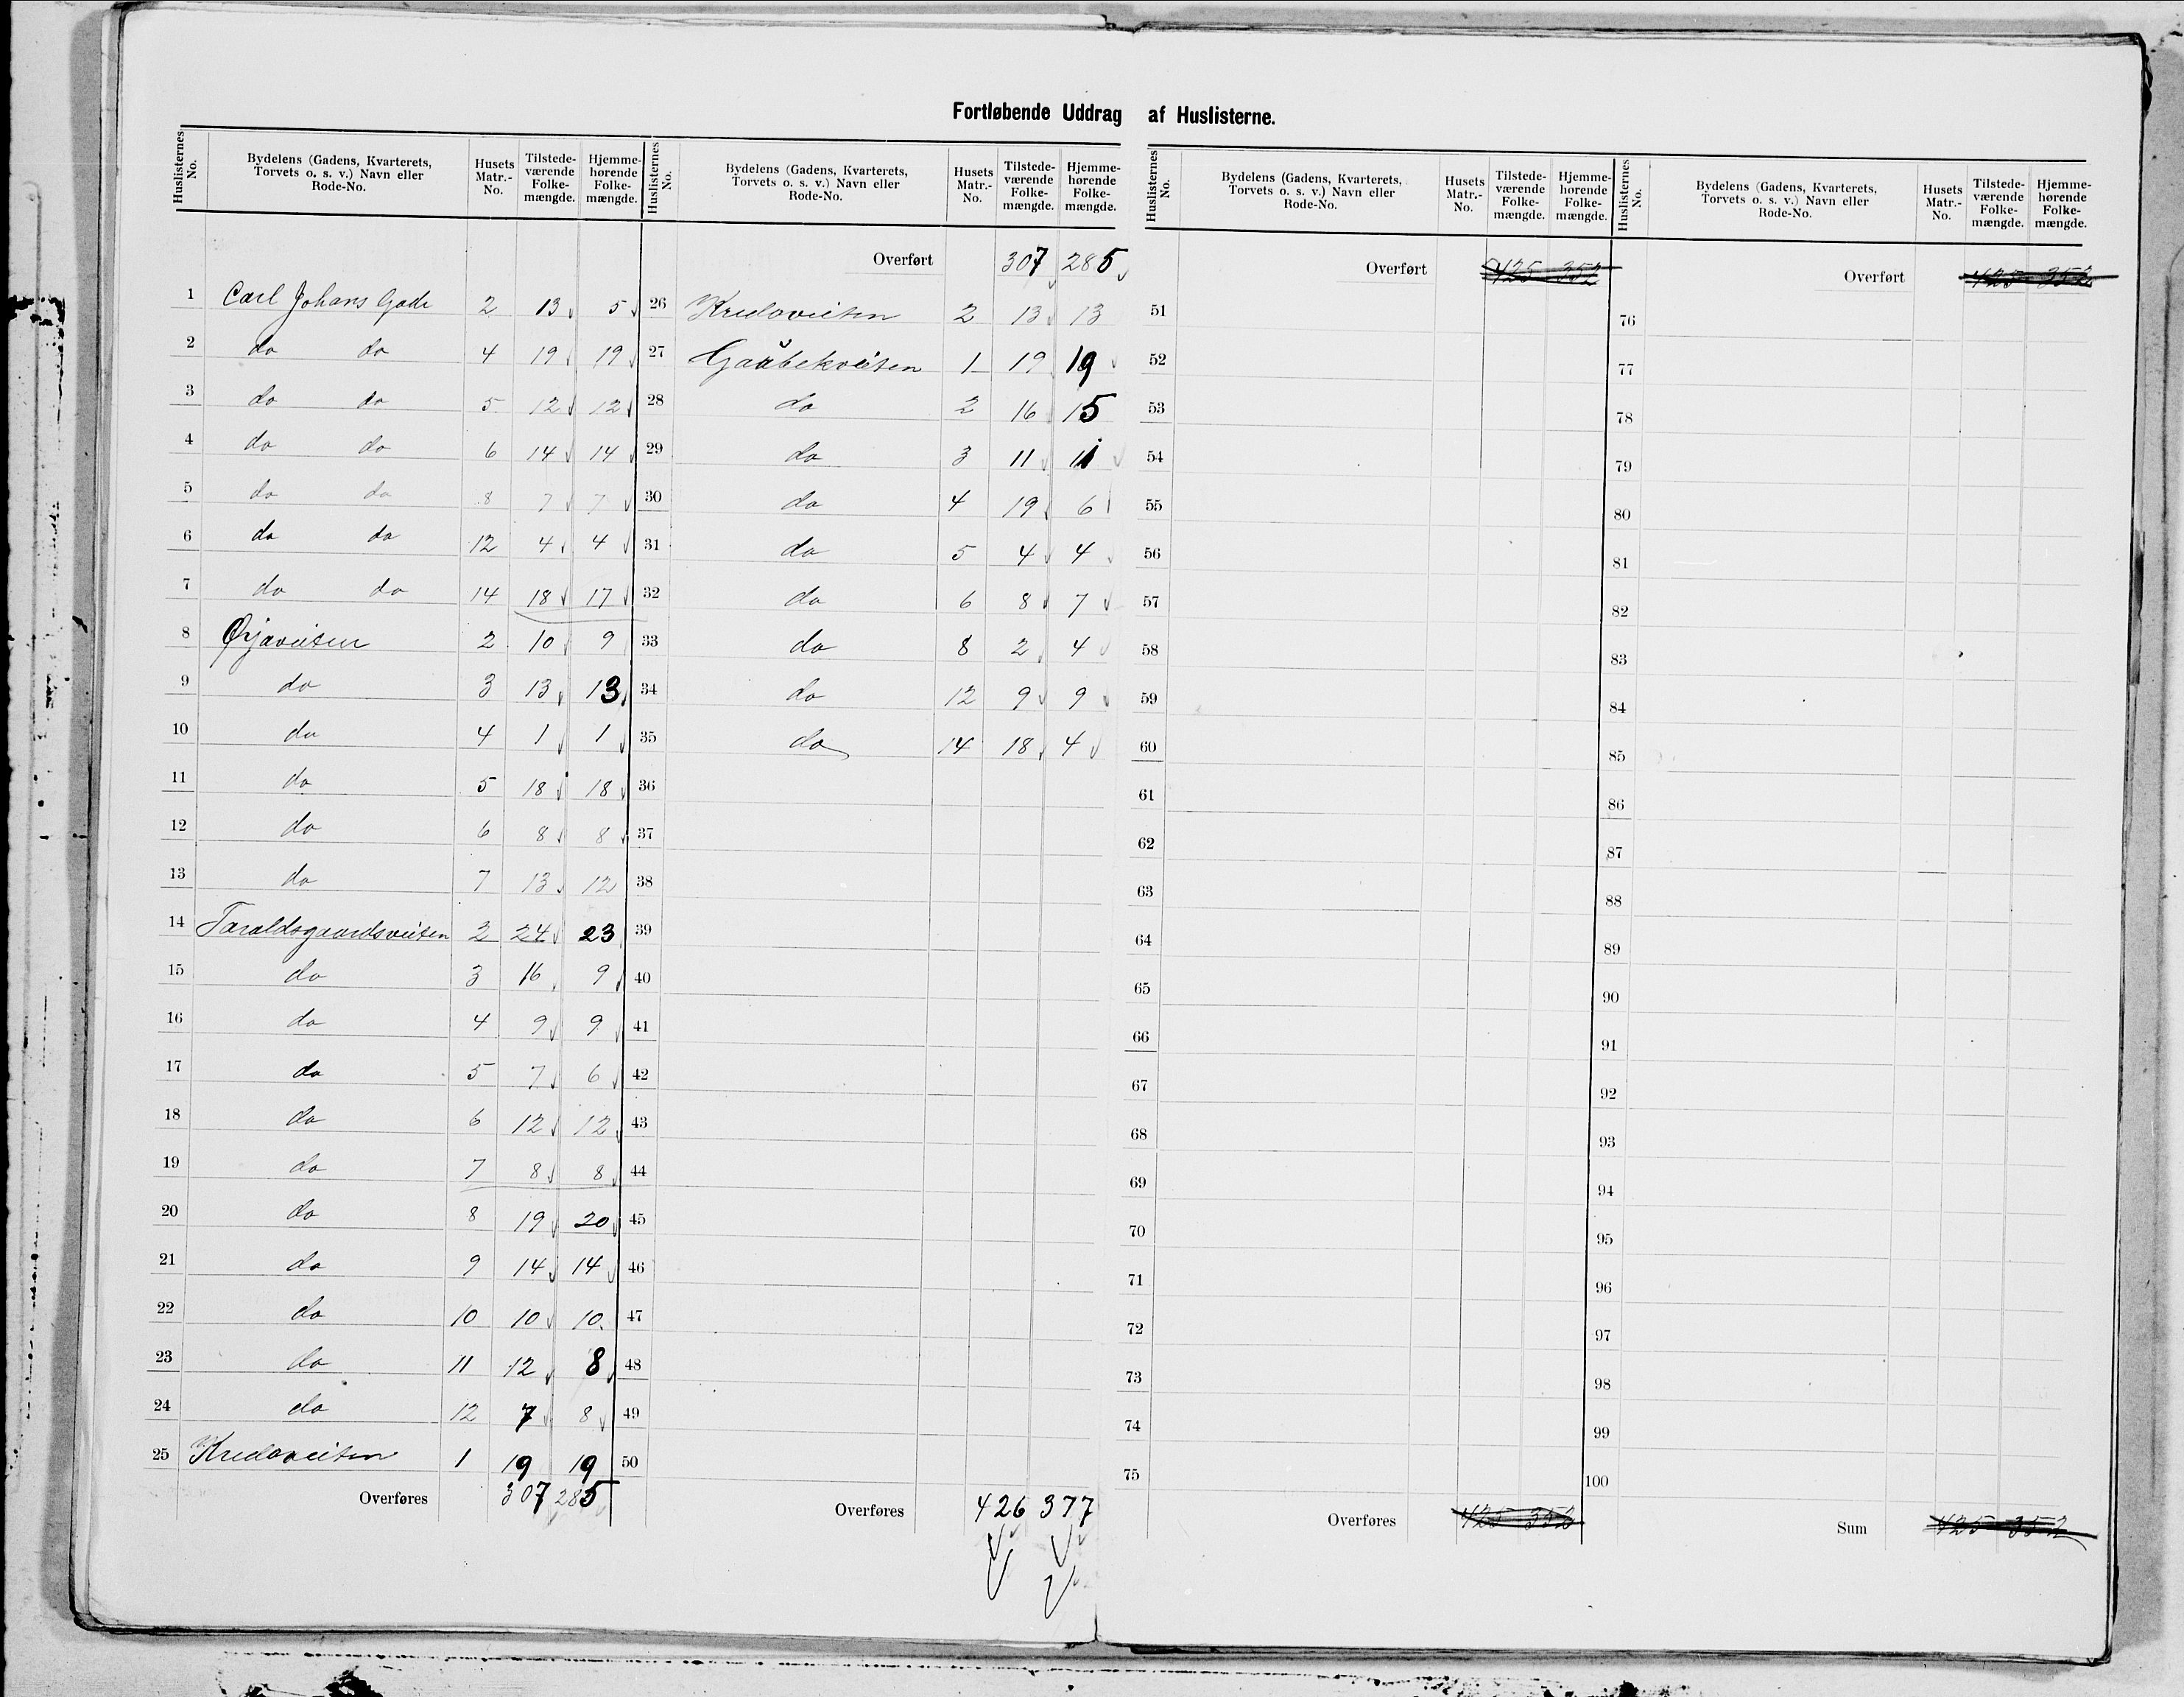 Fortløbende Uddrag af Huslisterne.
Huslisternes No. Bydelens (Gadens, Kvarterets, Torvets o. s. v.) Navn eller Rode-No. Husets Matr.-No. Tilstede-værende Folke-mængde. Hjemme-hørende Folke-mængde.
1 Carl Johans Gade 2 13 5
2 do do 4 19 19
3 do do 5 12 12
4 do do 6 14 14
5 do do 8 7 7
6 do do 12 4 4
7 do do 14 18 17
8 Ørjaveiten 2 10 9
9 do 3 13 13
10 do 4 1 1
11 do 5 18 18
12 do 6 8 8
13 do 7 13 12
14 Taraldsgaardsveiten 2 24 23
15 do 3 16 9
16 do 4 9 9
17 do 5 7 6
18 do 6 12 12
19 do 7 8 8
20 do 8 19 20
21 do 9 14 14
22 do 10 10 10
23 do 11 12 8
24 do 12 7 8
25 Kredoveiten 1 19 19
Overføres 307 285
Huslisternes No. Bydelens (Gadens, Kvarterets, Torvets o. s. v.) Navn eller Rode-No. Husets Matr.-No. Tilstede-værende Folke-mængde. Hjemme-hørende Folke-mængde.
Overført 307 285
26 Kredoveiten 2 13 13
27 Gaubekveiten 1 19 19
28 do 2 16 15
29 do 3 11 11
30 do 4 19 6
31 do 5 4 4
32 do 6 8 7
33 do 8 2 4
34 do 12 9 9
35 do 14 18 4
36
37
38
39
40
41
42
43
44
45
46
47
48
49
50
Overføres 426 377
Huslisternes No. Bydelens (Gadens, Kvarterets, Torvets o. s. v.) Navn eller Rode-No. Husets Matr.-No. Tilstede-værende Folke-mængde. Hjemme-hørende Folke-mængde.
Overført 425 352
51
52
53
54
55
56
57
58
59
60
61
62
63
64
65
66
67
68
69
70
71
72
73
74
75
Overføres 425 352
Huslisternes No. Bydelens (Gadens, Kvarterets, Torvets o. s. v.) Navn eller Rode-No. Husets Matr.-No. Tilstede-værende Folke-mængde. Hjemme-hørende Folke-mængde.
Overført 425 352
76
77
78
79
80
81
82
83
84
85
86
87
88
89
90
91
92
93
94
95
96
97
98
99
100
Sum 425 352